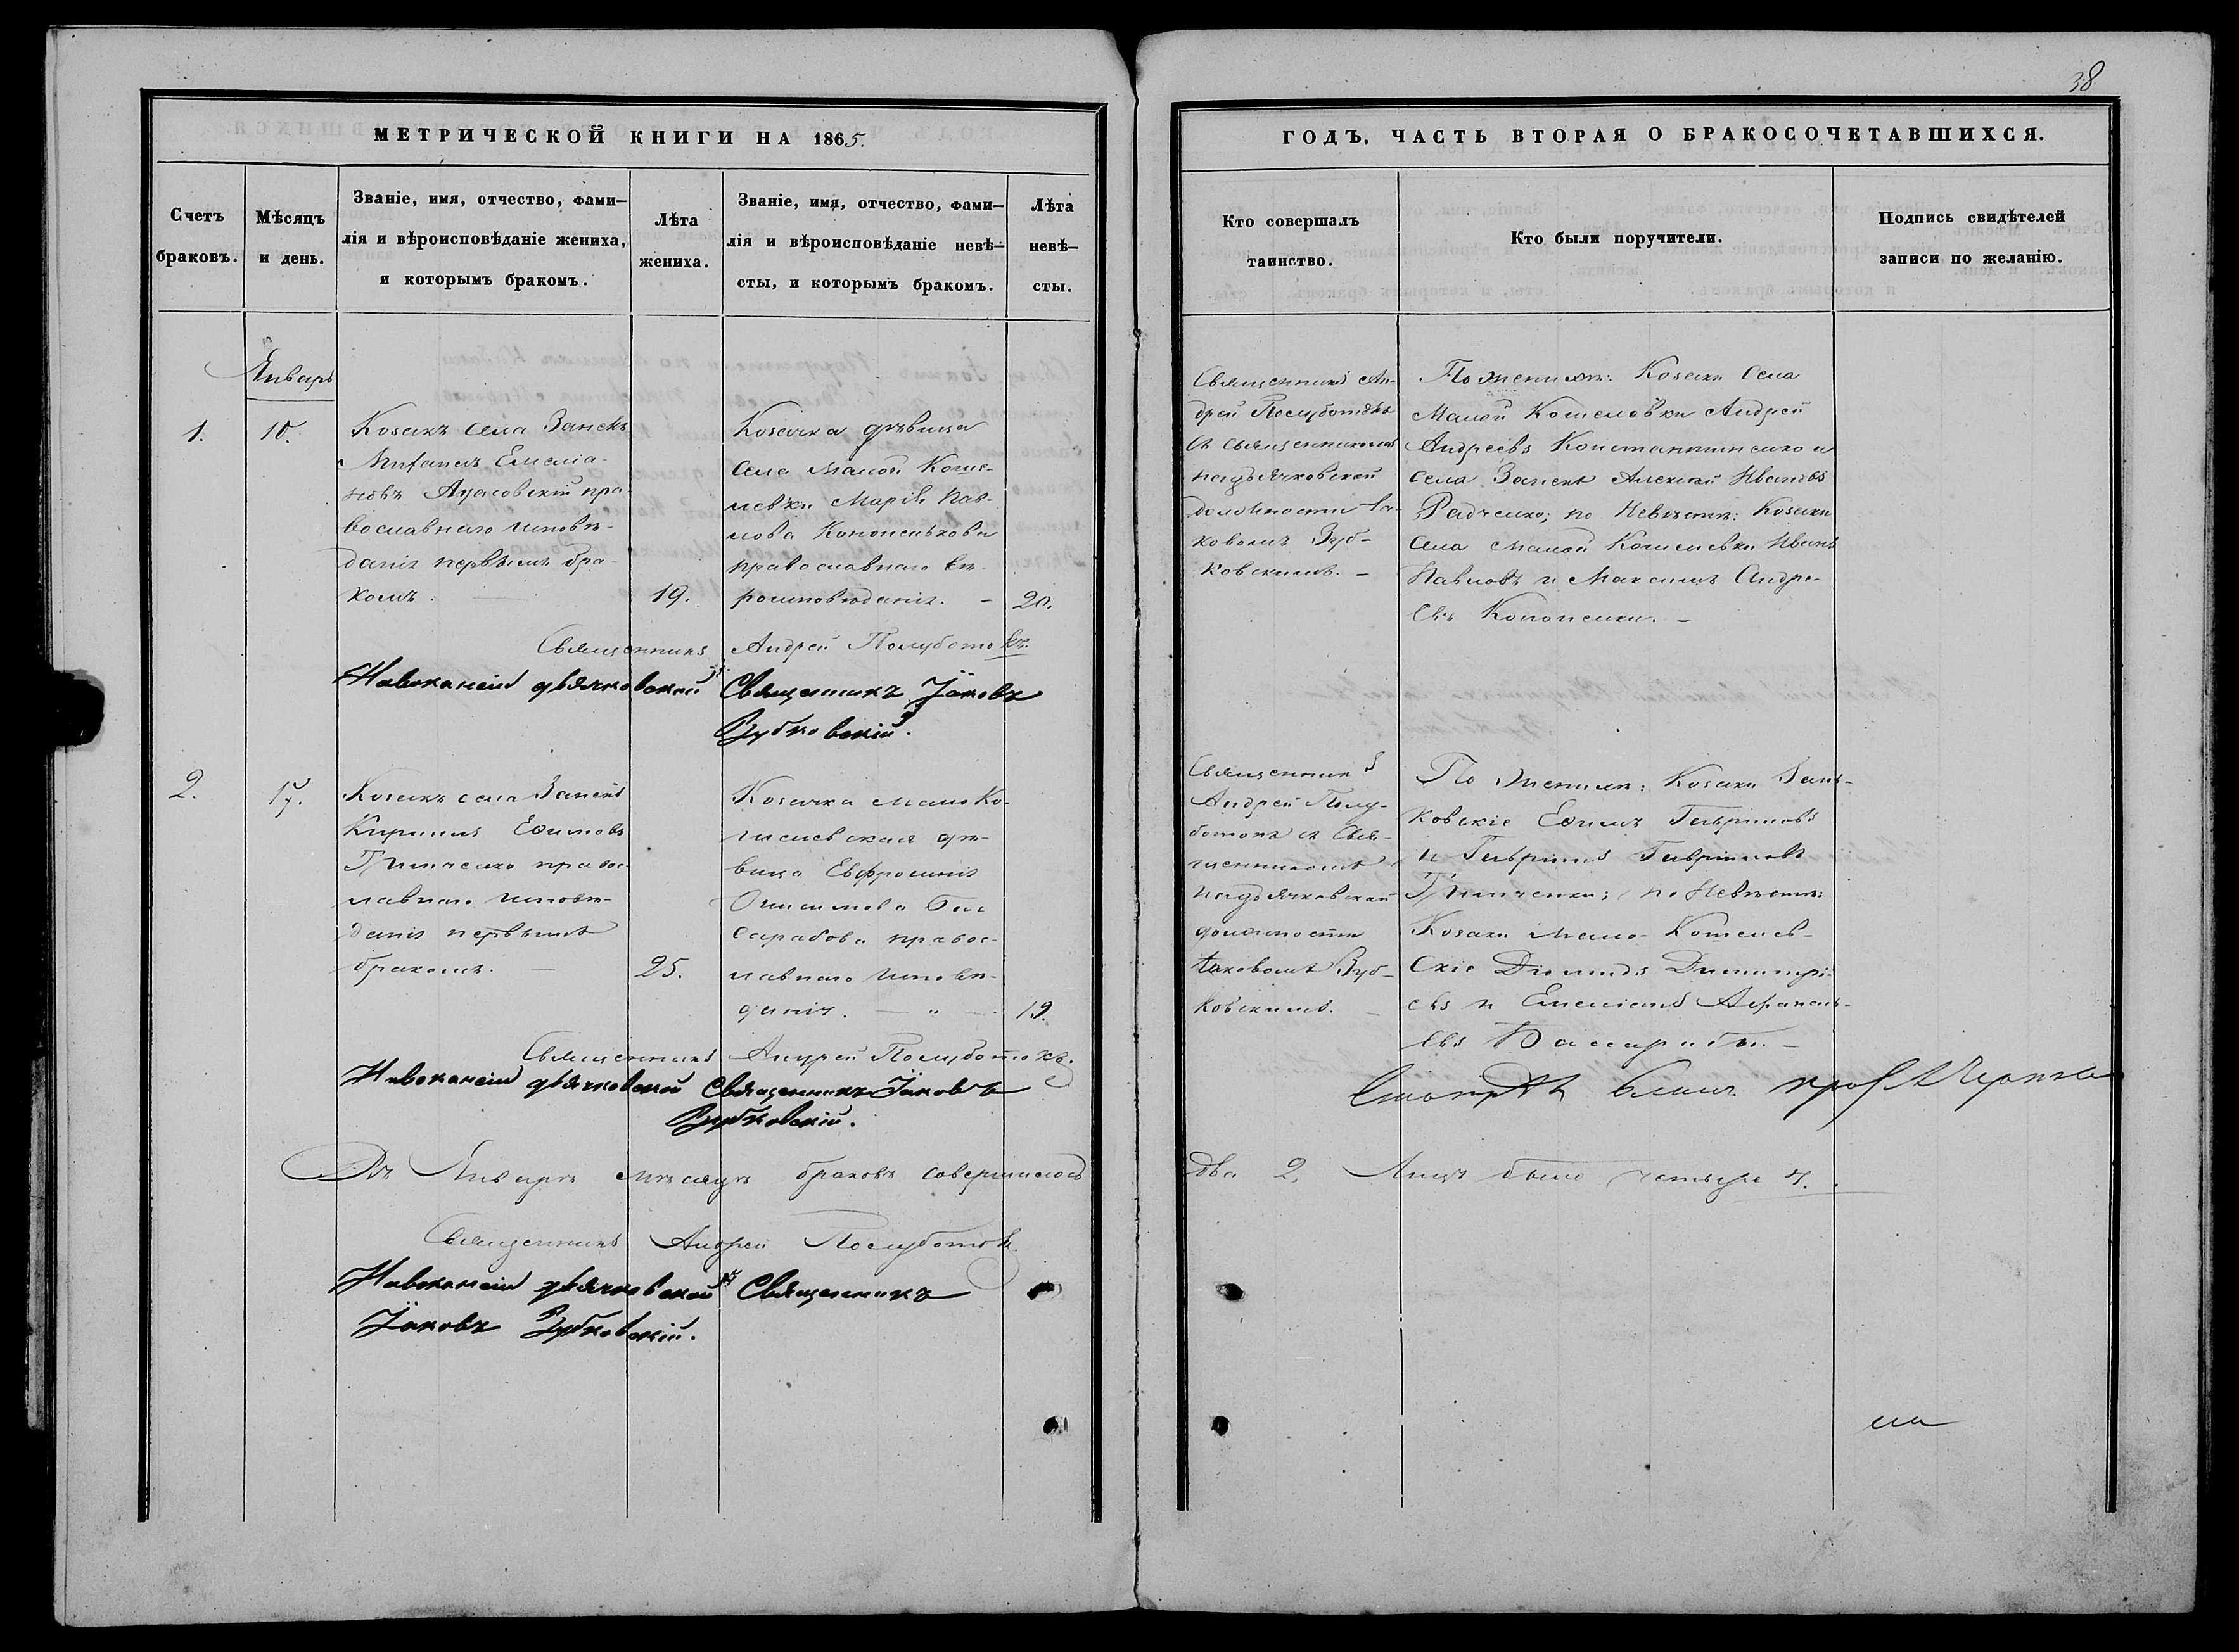 38
МЕТРИЧЕСКОЙ КНИГИ НА 1865.
ГОДЪ, ЧАСТЬ ВТОРАЯ О БРАКОСОЧЕТАВШИХСЯ.
Счетъ
браковъ.
Мѣсяцъ
и день.
Званіе, имя, отчество, фами-
лія и вѣроисповѣданіе жениха,
и которымъ бракомъ.
Лѣта
жениха.
Званіе, имя, отчество, фами-
лія и вѣроисповѣданіе невѣ-
сты, и которымъ бракомъ.
Лѣта
невѣ-
сты.
Кто совершалъ
таинство.
Кто были поручители.
Подпись свидѣтелей
записи по желанію.
Январь
1.
10.
Козакъ села Занекъ
Емеліа-
новъ пра-
вославнаго исповѣ-
данія первымъ бра-
комъ.
19.
Козачка дѣвица
села Малой Коше-
левки Марія Пав-
лова Кононенькова
православнаго вѣ-
роисповѣданія. -
20.
Священникъ Ан-
дрей Полуботокъ
съ священникомъ
на дьячковской
должности Іа-
ковомъ Зуб-
ковскимъ. -
По женихѣ: Козаки села
Малой Кошелевки Андрей
Андреевъ Константиненко и
села Занекъ Алексій Ивановъ
Радченко; по невѣстѣ: Козаки
села Малой Кошелевки Иванъ
Павловъ и Максимъ Андре-
евъ Кононенки. -
Священникъ Андрей Полубото къ.
На вакансіи дьячковской Священникъ Іаковъ
Зубковскій.
2.
17.
Козакъ села Занекъ
Кириллъ Ефимовъ
Гринченко правос-
лавнаго исповѣ-
данія первымъ
бракомъ. -
25.
Козачка мало Ко-
шелевская дѣ-
вица Евфросинія
Онисимова Бас-
сарабова правос-
лавнаго исповѣ-
данія. - " -
19.
Священникъ
Андрей Полу-
ботокъ съ Свя-
щенникомъ
на дьячковской
должности
Іаковомъ Зуб-
ковскимъ. -
По женихѣ: Козаки Зань-
ковскіе Ефимъ Гавріиловъ
и Гавріилъ Гавріиловъ
Гринченки; по невѣстѣ:
Козаки мало-Кошелев-
скіе Діомидъ Димитрі-
евъ и Емеліанъ Афанась-
евъ Бассарабы. -
Священникъ Андрей Полуботокъ.
На вакансіи дьячковской Священникъ Іаковъ
Зубковскій.
Смотрѣлъ
Въ Январѣ мѣсяцѣ браковъ совершилось
два 2. Лицъ было четыре 4.
Священникъ Андрей Полуботокъ.
На вакансіи дьячковской Священникъ
Іаковъ Зубковскій.